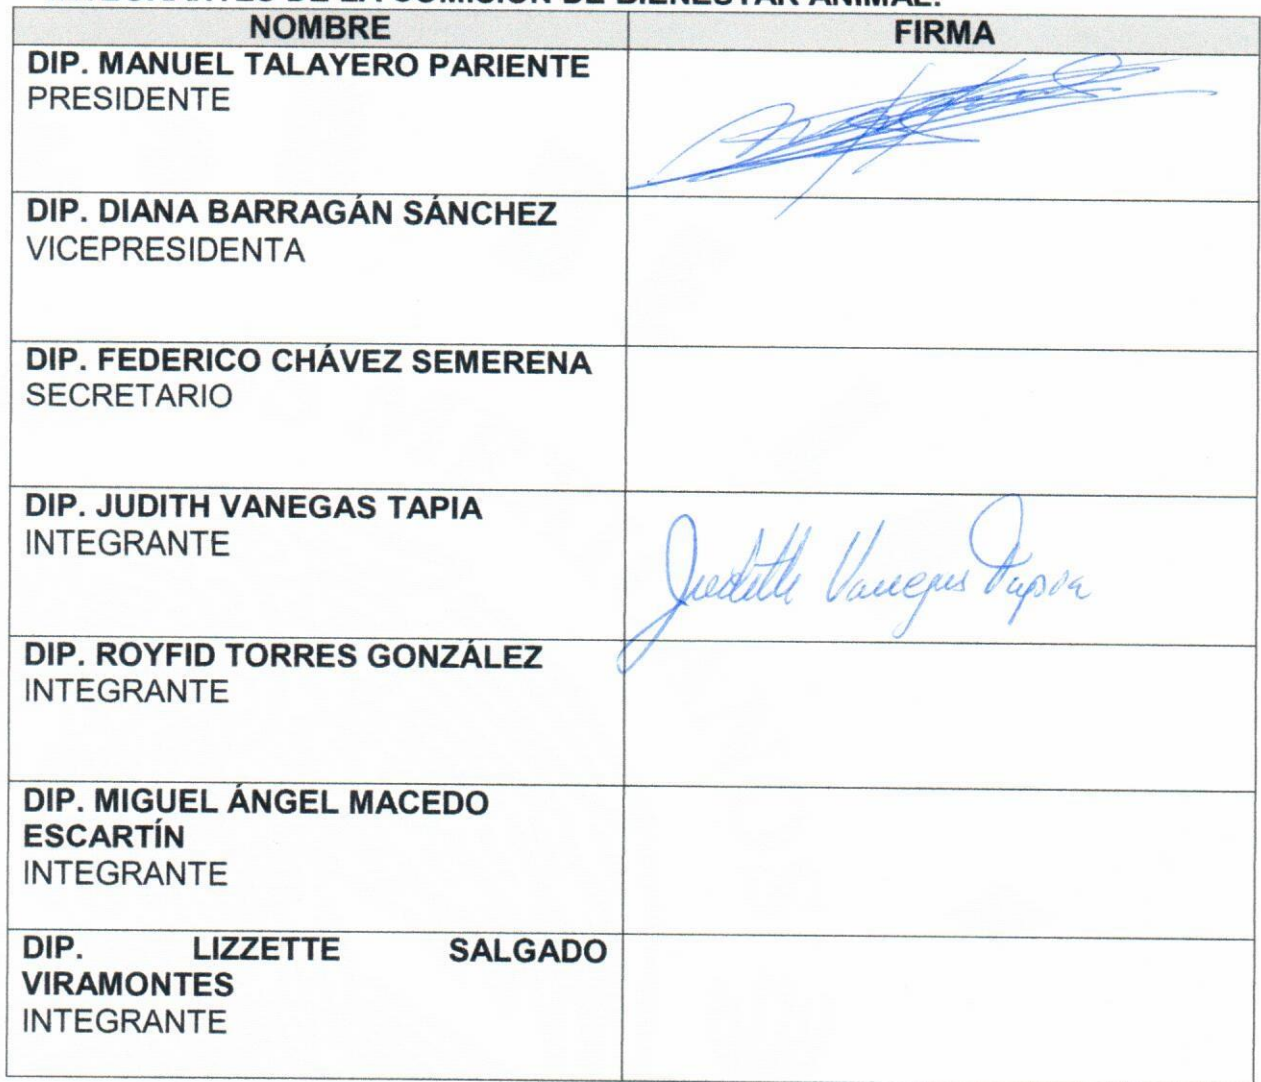 DE LA COMISIÓN DE BIENESTAR ANIMAL.
NOMBRE FIRMA
DIP. MANUEL TALAYERO PARIENTE
PRESIDENTE
DIP. DIANA BARRAGÁN SÁNCHEZ
VICEPRESIDENTA
DIP. FEDERICO CHÁVEZ SEMERENA
SECRETARIO
DIP. JUDITH VANEGAS TAPIA
INTEGRANTE
Judith Vanegas Tapia
DIP. ROYFID TORRES GONZÁLEZ
INTEGRANTE
DIP. MIGUEL ÁNGEL MACEDO
ESCARTÍN
INTEGRANTE
DIP. LIZZETTE SALGADO
VIRAMONTES
INTEGRANTE